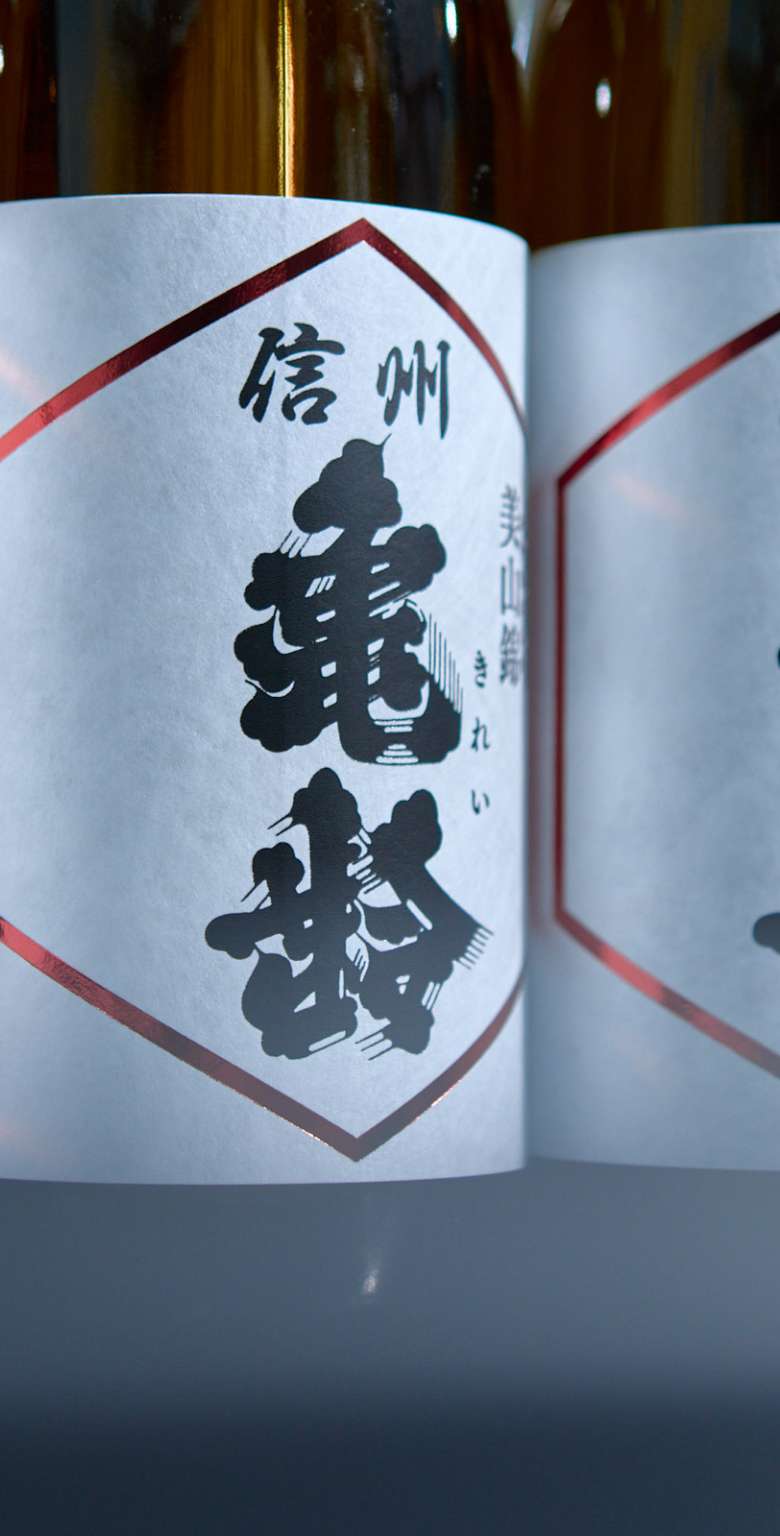 信州
亀齢
きれい
美山錦